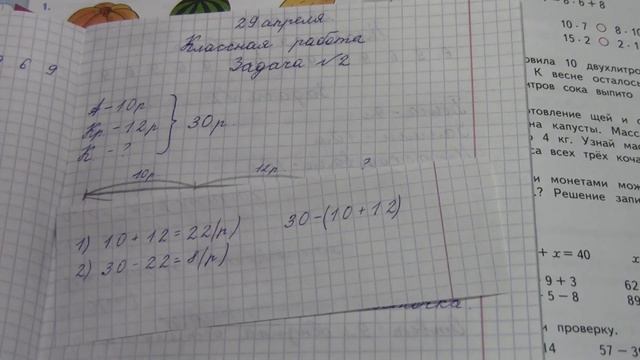 1.
29 апреля
Классная работа
Задача №2
9 6 9
А – 10р.
Кр – 12р
К – ?
30р.
10р 12р ?
1) 10 + 12 = 22(р) 30-(10+12)
2) 30 - 22 = 8(р)
· 6 + 8
10 · 7 ○ 8 · 10
15 · 2 ○ 2 · 1
овила 10 двухлитро
К весне осталось
тров сока выпито
отовление щей и с
на капусты. Масс
о 4 кг. Узнай мас
са всех трёх коча
и монетами мож
.? Решение запи
+ x = 40
x
9 + 3 62
5 − 8 89
и проверку.
14 57 − 3